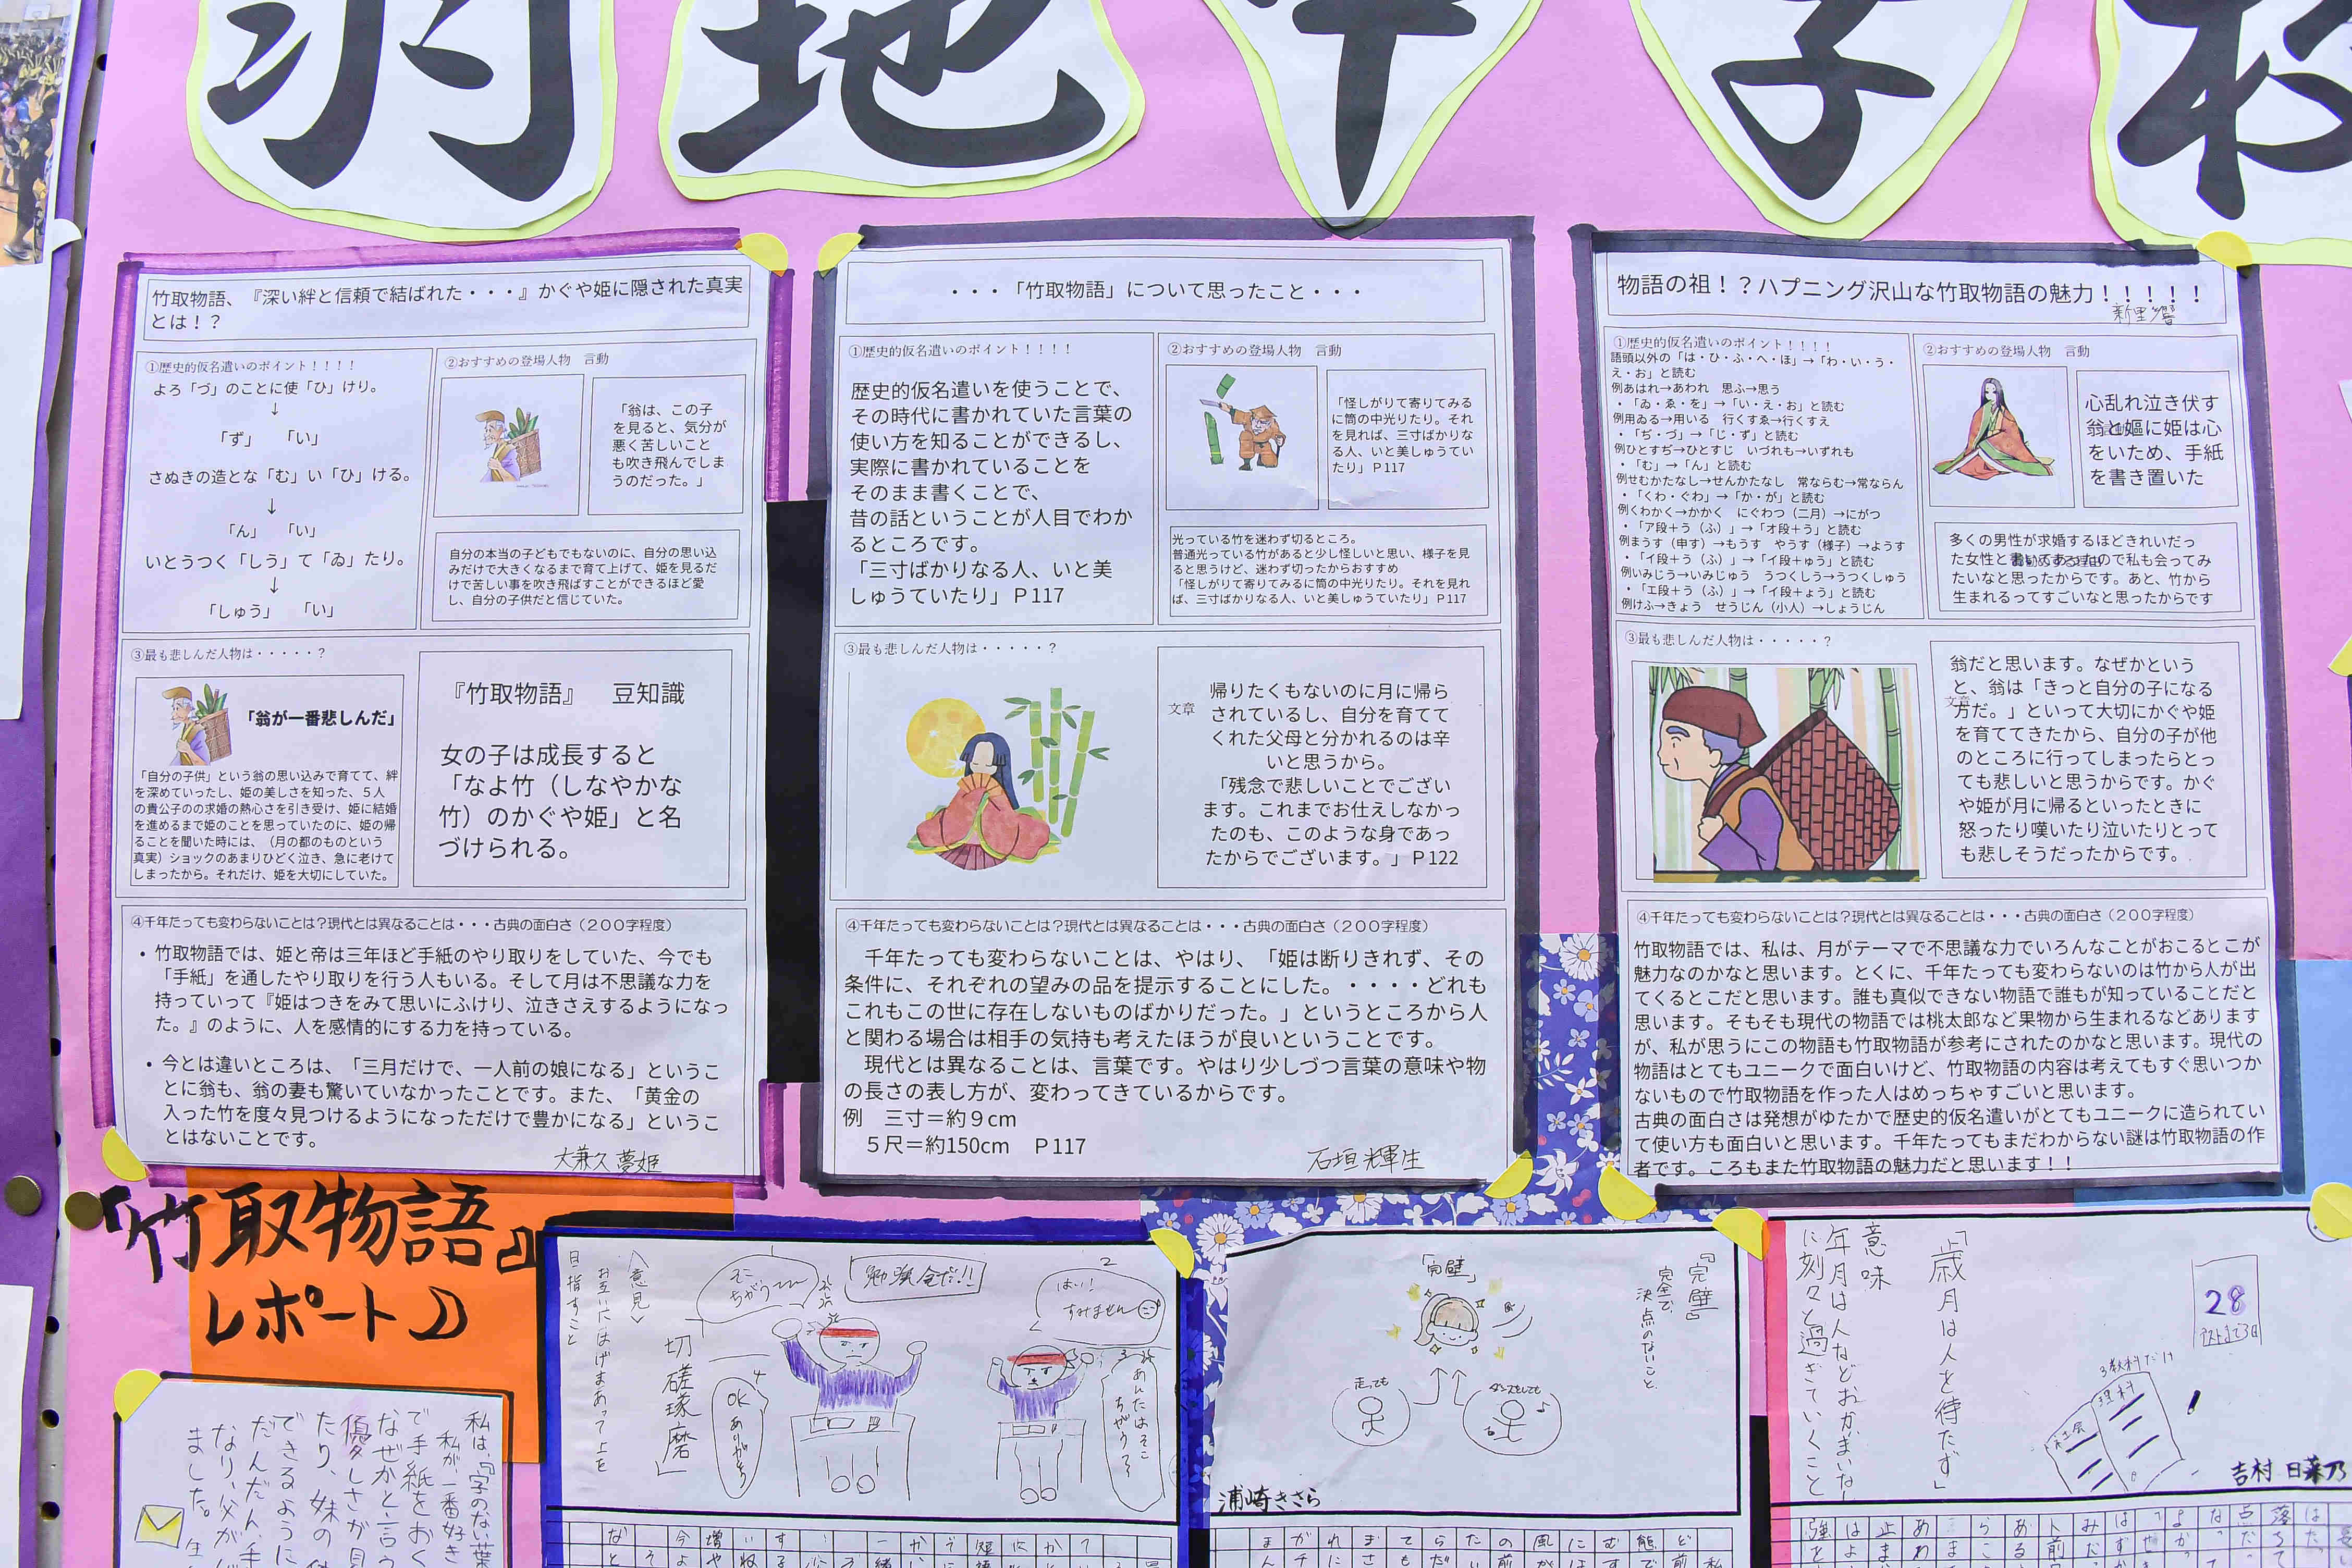 羽地中学校
竹取物語、『深い絆と信頼で結ばれた・・・』かぐや姫に隠された真実
とは！？
①歴史的仮名遣いのポイント！！！！
よろ「づ」のことに使「ひ」けり。
↓
「ず」　「い」
さぬきの造とな「む」い「ひ」ける。
↓
「ん」　「い」
いとうつく「しう」て「ゐ」たり。
↓
「しゅう」　「い」
②おすすめの登場人物　言動
「翁は、この子
を見ると、気分が
悪く苦しいこと
も吹き飛んでしま
うのだった。」
自分の本当の子どもでもないのに、自分の思い込
みだけで大きくなるまで育て上げて、姫を見るだ
けで苦しい事を吹き飛ばすことができるほど愛
し、自分の子供だと信じていた。
③最も悲しんだ人物は・・・・・？
「翁が一番悲しんだ」
「自分の子供」という翁の思い込みで育てて、絆
を深めていったし、姫の美しさを知った、５人
の貴公子のの求婚の熱心さを引き受け、姫に結婚
を進めるまで姫のことを思っていたのに、姫の帰
ることを聞いた時には、（月の都のものという
真実）ショックのあまりひどく泣き、急に老けて
しまったから。それだけ、姫を大切にしていた。
『竹取物語』　豆知識
女の子は成長すると
「なよ竹（しなやかな
竹）のかぐや姫」と名
づけられる。
④千年たっても変わらないことは？現代とは異なることは・・・古典の面白さ（２００字程度）
・竹取物語では、姫と帝は三年ほど手紙のやり取りをしていた、今でも
「手紙」を通したやり取りを行う人もいる。そして月は不思議な力を
持っていって『姫はつきをみて思いにふけり、泣きさえするようになっ
た。』のように、人を感情的にする力を持っている。
・今とは違いところは、「三月だけで、一人前の娘になる」というこ
とに翁も、翁の妻も驚いていなかったことです。また、「黄金の
入った竹を度々見つけるようになっただけで豊かになる」というこ
とはないことです。
大兼久 夢姫
・・・「竹取物語」について思ったこと・・・
①歴史的仮名遣いのポイント！！！！
歴史的仮名遣いを使うことで、
その時代に書かれていた言葉の
使い方を知ることができるし、
実際に書かれていることを
そのまま書くことで、
昔の話ということが人目でわか
るところです。
「三寸ばかりなる人、いと美
しゅうていたり」Ｐ117
②おすすめの登場人物　言動
「怪しがりて寄りてみる
に筒の中光りたり。それ
を見れば、三寸ばかりな
る人、いと美しゅうてい
たり」Ｐ117
光っている竹を迷わず切るところ。
普通光っている竹があると少し怪しいと思い、様子を見
ると思うけど、迷わず切ったからおすすめ
「怪しがりて寄りてみるに筒の中光りたり。それを見れ
ば、三寸ばかりなる人、いと美しゅうていたり」Ｐ117
③最も悲しんだ人物は・・・・・？
文章
帰りたくもないのに月に帰ら
されているし、自分を育てて
くれた父母と分かれるのは辛
いと思うから。
「残念で悲しいことでござい
ます。これまでお仕えしなかっ
たのも、このような身であっ
たからでございます。」Ｐ122
④千年たっても変わらないことは？現代とは異なることは・・・古典の面白さ（２００字程度）
千年たっても変わらないことは、やはり、「姫は断りきれず、その
条件に、それぞれの望みの品を提示することにした。・・・・どれも
これもこの世に存在しないものばかりだった。」というところから人
と関わる場合は相手の気持も考えたほうが良いということです。
現代とは異なることは、言葉です。やはり少しづつ言葉の意味や物
の長さの表し方が、変わってきているからです。
例　三寸＝約９cm
５尺＝約150cm　Ｐ117
石垣 輝生
物語の祖！？ハプニング沢山な竹取物語の魅力！！！！！
新里 響
①歴史的仮名遣いのポイント！！！！
語頭以外の「は・ひ・ふ・へ・ほ」→「わ・い・う・
え・お」と読む
例あはれ→あわれ　思ふ→思う
・「ゐ・ゑ・を」→「い・え・お」と読む
例用ゐる→用いる　行くすゑ→行くすえ
・「ぢ・づ」→「じ・ず」と読む
例ひとすぢ→ひとすじ　いづれも→いずれも
・「む」→「ん」と読む
例せむかたなし→せんかたなし　常ならむ→常ならん
・「くわ・ぐわ」→「か・が」と読む
例くわかく→かかく　にぐわつ（二月）→にがつ
・「ア段＋う（ふ）」→「オ段＋う」と読む
例まうす（申す）→もうす　やうす（様子）→ようす
・「イ段＋う（ふ）」→「イ段＋ゅう」と読む
例いみじう→いみじゅう　うつくしう→うつくしゅう
・「エ段＋う（ふ）」→「イ段＋ょう」と読む
例けふ→きょう　せうじん（小人）→しょうじん
②おすすめの登場人物　言動
心乱れ泣き伏す
翁と嫗に姫は心
をいため、手紙
を書き置いた
多くの男性が求婚するほどきれいだっ
た女性と書いてあったので私も会ってみ
たいなと思ったからです。あと、竹から
生まれるってすごいなと思ったからです
③最も悲しんだ人物は・・・・・？
文章
翁だと思います。なぜかという
と、翁は「きっと自分の子になる
方だ。」といって大切にかぐや姫
を育ててきたから、自分の子が他
のところに行ってしまったらとっ
ても悲しいと思うからです。かぐ
や姫が月に帰るといったときに
怒ったり嘆いたり泣いたりとって
も悲しそうだったからです。
④千年たっても変わらないことは？現代とは異なることは・・・古典の面白さ（２００字程度）
竹取物語では、私は、月がテーマで不思議な力でいろんなことがおこるとこが
魅力なのかなと思います。とくに、千年たっても変わらないのは竹から人が出
てくるとこだと思います。誰も真似できない物語で誰もが知っていることだと
思います。そもそも現代の物語では桃太郎など果物から生まれるなどあります
が、私が思うにこの物語も竹取物語が参考にされたのかなと思います。現代の
物語はとてもユニークで面白いけど、竹取物語の内容は考えてもすぐ思いつか
ないもので竹取物語を作った人はめっちゃすごいと思います。
古典の面白さは発想がゆたかで歴史的仮名遣いがとてもユニークに造られてい
て使い方も面白いと思います。千年たってもまだわからない謎は竹取物語の作
者です。ころもまた竹取物語の魅力だと思います！！
『竹取物語』
レポート♪
私は、『字のない葉
私が一番好き
で手紙をおく
なぜかと言う
優しさが見
たり、妹の
できるように
だんだん手
なり、父が
ました。
勉強会だ!!
はい!
すみません
あんたはそこ
ちがう
OK
ありがとう
「切磋琢磨」
〈意見〉
お互いにはげまあって上を
目指すこと
『完璧』
完全で、
決点のないこと。
「完璧」
走っても
ダンスをしても
浦崎きさら
「歳月は人を待たず」
意味
年月は人などおかまいなし
に刻々と過ぎていくこと
28
テストまで3日
3教科だけ
理科
社会
吉村 日菜乃